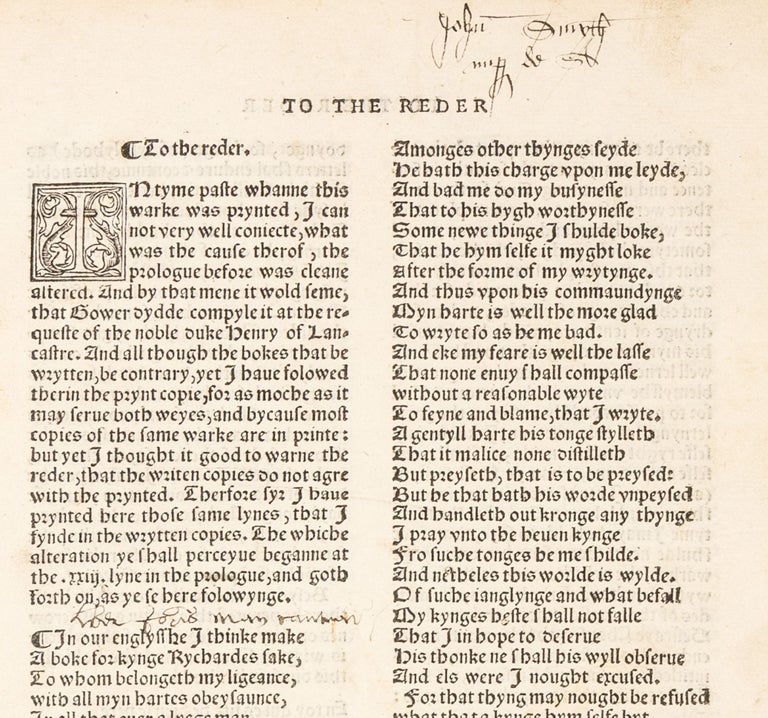 John Smyth
TO THE REDER
¶To the reder.
IN tyme paste whanne this
warke was prynted, I can
not very well coniecte, what
was the cause therof, the
prologue before was cleane
altered. And by that mene it wold seme,
that Gower dydde compyle it at the re-
queste of the noble duke Henry of Lan-
castre. And all though the bokes that be
wrytten, be contrary, yet I haue folowed
therin the prynt copie, for as moche as it
may serue both weyes, and bycause most
copies of the same warke are in printe:
but yet I thought it good to warne the
reder, that the writen copies do not agre
with the prynted. Therfore syr I haue
prynted here those same lynes, that I
fynde in the wrytten copies. The whiche
alteration ye shall perceyue beganne at
the .xxiij. lyne in the prologue, and goth
forth on, as ye se here folowynge.
¶In our englysshe I thinke make
A boke for kynge Rychardes sake,
To whom belongeth my ligeance,
with all myn hartes obeysaunce,
In all that euer a lyege man
Amonges other thynges seyde
He hath this charge vpon me leyde,
And bad me do my busynesse
That to his hygh worthynesse
Some newe thinge I shulde boke,
That he hym selfe it myght loke
After the forme of my wrytynge.
And thus vpon his commaundynge
Myn harte is well the more glad
To wryte so as he me bad.
And eke my feare is well the lasse
That none enuy shall compasse
without a reasonable wyte
To feyne and blame, that I wryte.
A gentyll harte his tonge stylleth
That it malice none distilleth
But preyseth, that is to be preysed:
But he that hath his worde vnpeysed
And handleth out kronge any thynge
I pray vnto the heuen kynge
Fro suche tonges he me shilde.
And netheles this worlde is wylde.
Of suche ianglynge and what befall
My kynges heste shall not falle
That I in hope to deserue
His thonke ne shall his wyll obserue
And els were I nought excused.
For that thyng may nought be refused
what tha ta kynge hym selfe bet